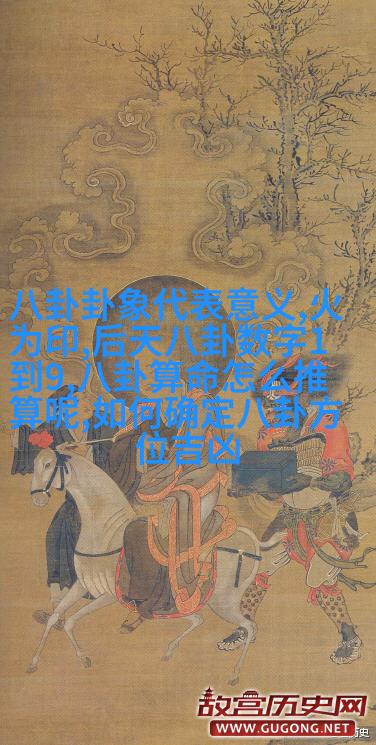 八卦卦象代表意义,火
为印,后天八卦数字1
到9,八卦算命怎么推
算呢,如何确定八卦方
位吉凶
故宫历史网
WWW.GUGONG.NET
历史